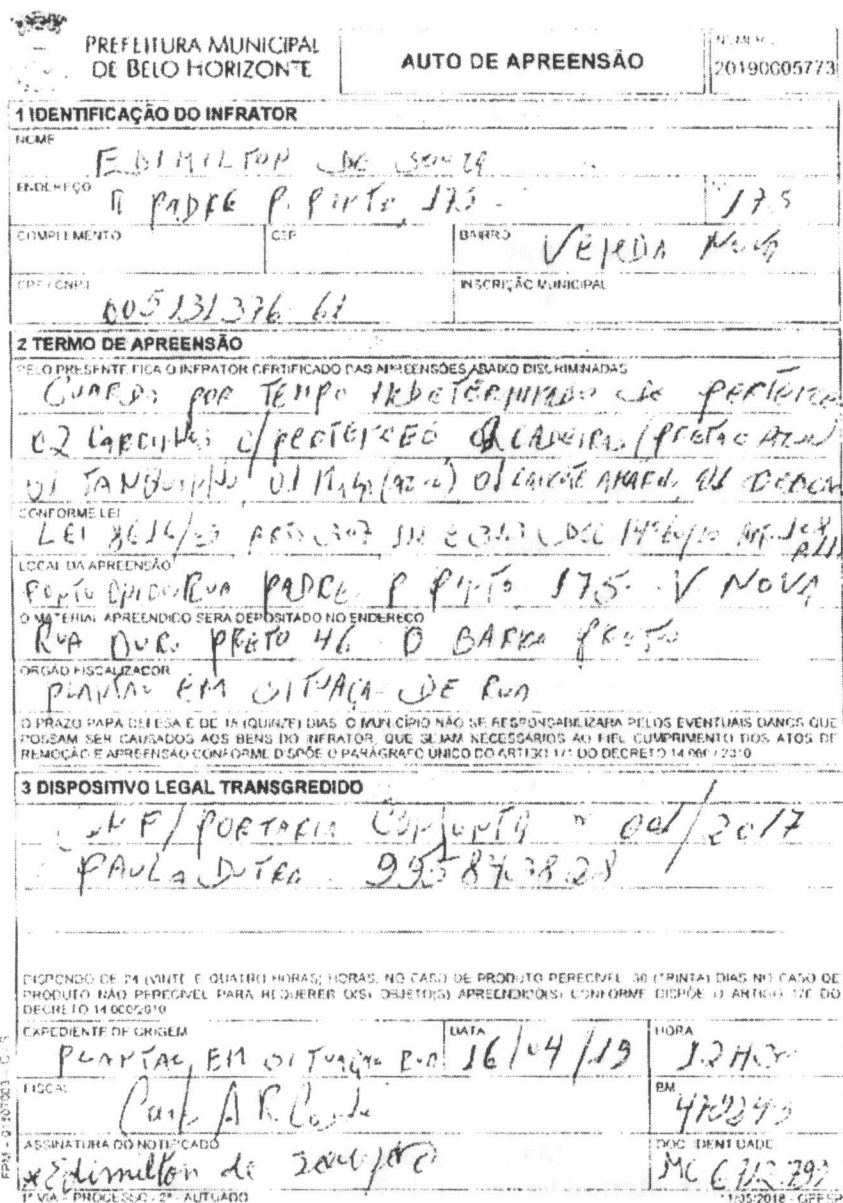 PREFEITURA MUNICIPAL
DE BELO HORIZONTE
AUTO DE APREENSÃO
NÚMERO
20190005773
1 IDENTIFICAÇÃO DO INFRATOR
NOME
EDIMILTON DE SOUZA
ENDEREÇO
R PADRE P. PINTO, 175 -
Nº
175
COMPLEMENTO
CEP
BAIRRO
VENDA NOVA
CPF / CNPJ
005131376 61
INSCRIÇÃO MUNICIPAL
2 TERMO DE APREENSÃO
PELO PRESENTE FICA O INFRATOR CERTIFICADO DAS APREENSÕES ABAIXO DISCRIMINADAS
GUARDA POR TEMPO INDETERMINADO DE PERTENCES
02 CARRINHOS C/PERTENCES 02 CADEIRAS (PRETA E AZUL)
01 TANQUINHO 01 (AZUL) 01 CAIXOTE AMAREL
CONFORME LEI
LEI 8616/03 DEC 14060/10
LOCAL DA APREENSÃO
RUA PADRE P PINTO 175 - V NOVA
O MATERIAL APREENDIDO SERA DEPOSITADO NO ENDEREÇO
RUA OURO PRETO 46 BARRO PRETO
ORGÃO FISCALIZADOR
PLANTAO EM SITUAÇA DE RUA
O PRAZO PARA DEFESA E DE 15 (QUINZE) DIAS. O MUNICÍPIO NÃO SE RESPONSABILIZARA PELOS EVENTUAIS DANOS QUE
POSSAM SER CAUSADOS AOS BENS DO INFRATOR, QUE SEJAM NECESSÁRIOS AO FIEL CUMPRIMENTO DOS ATOS DE
REMOÇÃO E APREENSÃO CONFORME DISPÕE O PARÁGRAFO ÚNICO DO ARTIGO 171 DO DECRETO 14.060 / 2010
3 DISPOSITIVO LEGAL TRANSGREDIDO
PORTARIA CONJUNTA 001/2017
PAULA DUTRA
DISPONDO DE 24 (VINTE E QUATRO HORAS) HORAS, NO CASO DE PRODUTO PERECIVEL 30 (TRINTA) DIAS NO CASO DE
PRODUTO NÃO PERECIVEL PARA REQUERER O(S) OBJETO(S) APREENDIDO(S) CONFORME DISPÕE O ARTIGO DO
DECRETO 14.060/2010
EXPEDIENTE DE ORIGEM
PLANTAO EM SITUAÇAO RUA
DATA
16/04/19
HORA
FISCAL
BM
ASSINATURA DO NOTIFICADO
Edimilton de
DOC IDENTIDADE
MG 6.712.792
1ª VIA - PROCESSO - 2ª - AUTUADO
11/05/2018 - GEFESP